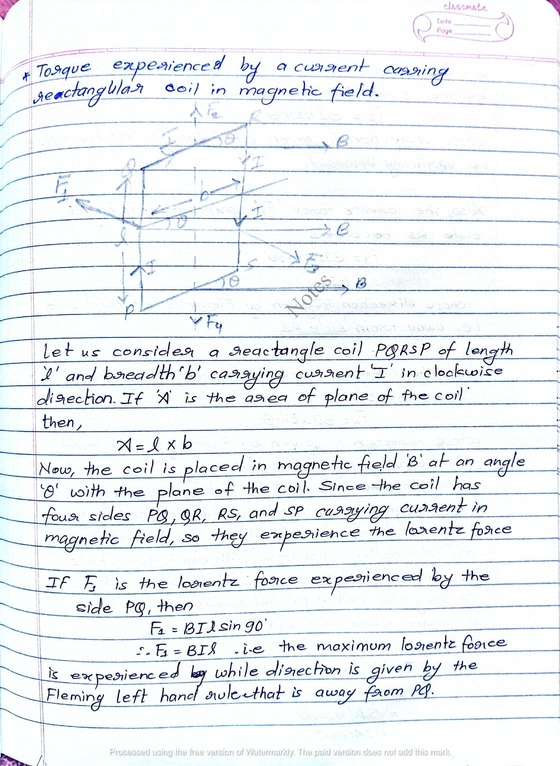 classmate
Date
Page
* Torque experienced by a current carring
reactangular coil in magnetic field.
F₂
R
I
θ
B
Q
I
F₁
b
I
θ
B
l
I
F₃
S
θ
B
P
Notes
F₄
Let us consider a reactangle coil PQRSP of length
'l' and breadth 'b' carrying current 'I' in clockwise
direction. If 'A' is the area of plane of the coil
then,
A = l x b
Now, the coil is placed in magnetic field 'B' at an angle
'θ' with the plane of the coil. Since the coil has
four sides PQ, QR, RS, and SP carrying current in
magnetic field, so they experience the lorentz force
If F₁ is the lorentz force experienced by the
side PQ, then
F₁ = BIl sin 90°
∴ F₁ = BIl .i.e the maximum lorentz force
is experienced while direction is given by the
Fleming left hand rule that is away from PQ.
Processed using the free version of Watermarkly. The paid version does not add this mark.